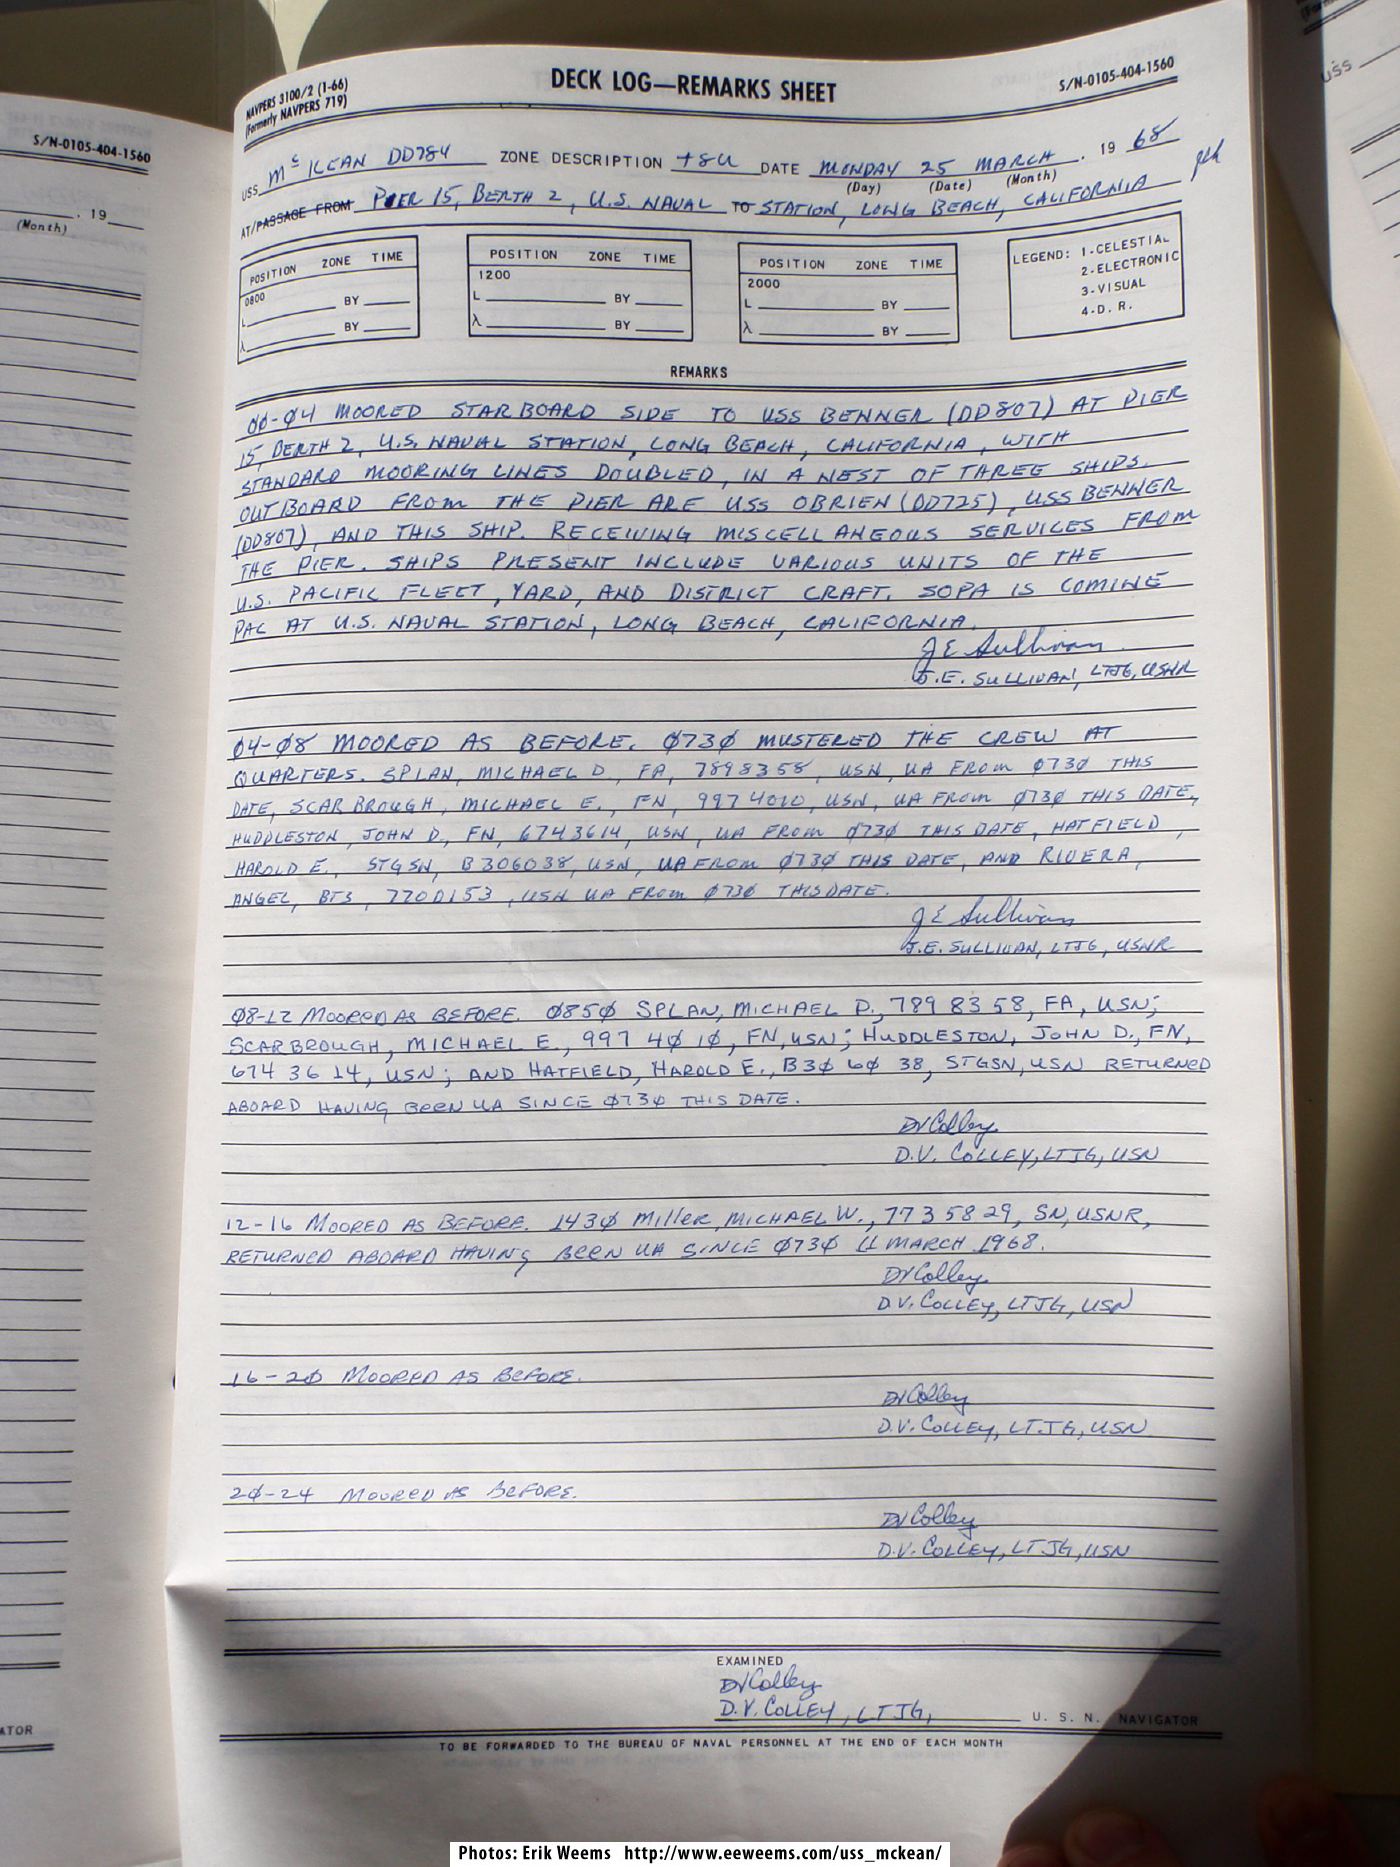 S/N-0105-404-1560
. 19
(Month)
ATOR
USS
NAVPERS 3100/2 (1-66)
(Formerly NAVPERS 719)
DECK LOG—REMARKS SHEET
S/N-0105-404-1560
USS McKEAN DD784 ZONE DESCRIPTION +8U DATE MONDAY 25 MARCH . 19 68
(Day) (Date) (Month)
AT/PASSAGE FROM PIER 15, BERTH 2, U.S. NAVAL TO STATION, LONG BEACH, CALIFORNIA
POSITION ZONE TIME
0800
L BY
λ BY
POSITION ZONE TIME
1200
L BY
λ BY
POSITION ZONE TIME
2000
L BY
λ BY
LEGEND: 1-CELESTIAL
2-ELECTRONIC
3-VISUAL
4-D. R.
REMARKS
00-04 MOORED STARBOARD SIDE TO USS BENNER (DD807) AT PIER
15, BERTH 2, U.S. NAVAL STATION, LONG BEACH, CALIFORNIA, WITH
STANDARD MOORING LINES DOUBLED, IN A NEST OF THREE SHIPS.
OUTBOARD FROM THE PIER ARE USS OBRIEN (DD725), USS BENNER
(DD807), AND THIS SHIP. RECEIVING MISCELLANEOUS SERVICES FROM
THE PIER. SHIPS PRESENT INCLUDE VARIOUS UNITS OF THE
U.S. PACIFIC FLEET, YARD, AND DISTRICT CRAFT. SOPA IS COMINE
PAC AT U.S. NAVAL STATION, LONG BEACH, CALIFORNIA.
J E Sullivan
J.E. SULLIVAN, LTJG, USNR
04-08 MOORED AS BEFORE. 0730 MUSTERED THE CREW AT
QUARTERS. SPLAN, MICHAEL D., FA, 7898358, USN, UA FROM 0730 THIS
DATE, SCARBROUGH, MICHAEL E., FN, 9974010, USN, UA FROM 0730 THIS DATE,
HUDDLESTON, JOHN D., FN, 6743614, USN, UA FROM 0730 THIS DATE, HATFIELD,
HAROLD E., STGSN, B306038, USN, UA FROM 0730 THIS DATE, AND RIVERA,
ANGEL, BT3, 7700153, USN UA FROM 0730 THIS DATE.
J E Sullivan
J.E. SULLIVAN, LTJG, USNR
08-12 MOORED AS BEFORE. 0850 SPLAN, MICHAEL D., 789 83 58, FA, USN;
SCARBROUGH, MICHAEL E., 997 40 10, FN, USN; HUDDLESTON, JOHN D., FN,
674 36 14, USN; AND HATFIELD, HAROLD E., B30 60 38, STGSN, USN RETURNED
ABOARD HAVING BEEN UA SINCE 0730 THIS DATE.
DV Colley
D.V. COLLEY, LTJG, USN
12-16 MOORED AS BEFORE. 1430 Miller, MICHAEL W., 773 58 29, SN, USNR,
RETURNED ABOARD HAVING BEEN UA SINCE 0730 11 MARCH 1968.
DV Colley
D.V. COLLEY, LTJG, USN
16-20 MOORED AS BEFORE.
DV Colley
D.V. COLLEY, LTJG, USN
20-24 MOORED AS BEFORE.
DV Colley
D.V. COLLEY, LTJG, USN
EXAMINED
DV Colley
D.V. COLLEY, LTJG, U. S. N. NAVIGATOR
TO BE FORWARDED TO THE BUREAU OF NAVAL PERSONNEL AT THE END OF EACH MONTH
Photos: Erik Weems http://www.eeweems.com/uss_mckean/